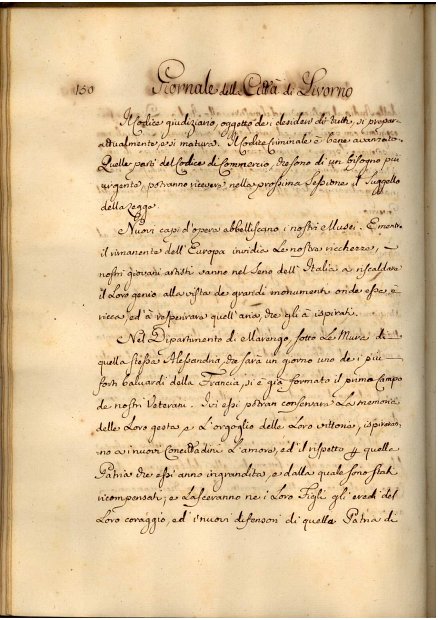 150 Giornale della Città di Livorno
Il Codice giudiziario, oggetto de i desideri di tutti, si prepara
attualmente, e si matura. Il Codice Criminale è bene avanzato.
Quelle parti del Codice di Commercio, che sono di un bisogno più
urgente, potranno ricevere nella prossima Sessione il Suggello
della Legge.
Nuovi capi d'opera abbelliscano i nostri Musei. E mentre
il rimanente dell'Europa invidia le nostre ricchezze,
nostri giovani artisti vanno nel Seno dell'Italia a riscaldare
il Loro genio alla vista de grandi monumenti onde essa è
ricca, ed à respirare quell'aria, che gli à ispirati.
Nel Dipartimento di Marengo, sotto le Mura di
quella stessa Alessandria, che sarà un giorno uno de i più
forti baluardi della Francia, si è già formato il primo Campo
de nostri Veterani. Ivi essi potran conservare La memoria
delle Loro gesta, e L'orgoglio delle Loro vittorie, ispireran-
no a i nuovi Concittadini L'amore, ed il rispetto p quella
Patria che essi anno ingrandita, e dalla quale sono stati
ricompensati; e Lasceranno ne i Loro Figli gli eredi del
Loro coraggio, ed i nuovi difensori di quella Patria di